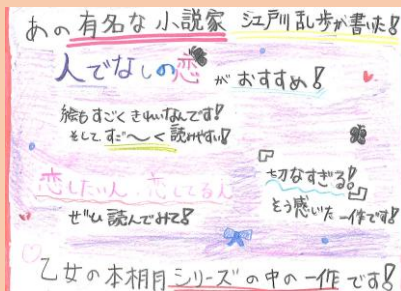 あの有名な小説家 江戸川乱歩が書いた!
人でなしの恋がおすすめ!
絵もすごくきれいなんです!
そしてすご~く読みやすい!
恋したい人、恋してる人
ぜひ読んでみて!
『切なすぎる!』
そう感じた一作です!
乙女の本棚シリーズの中の一作です!